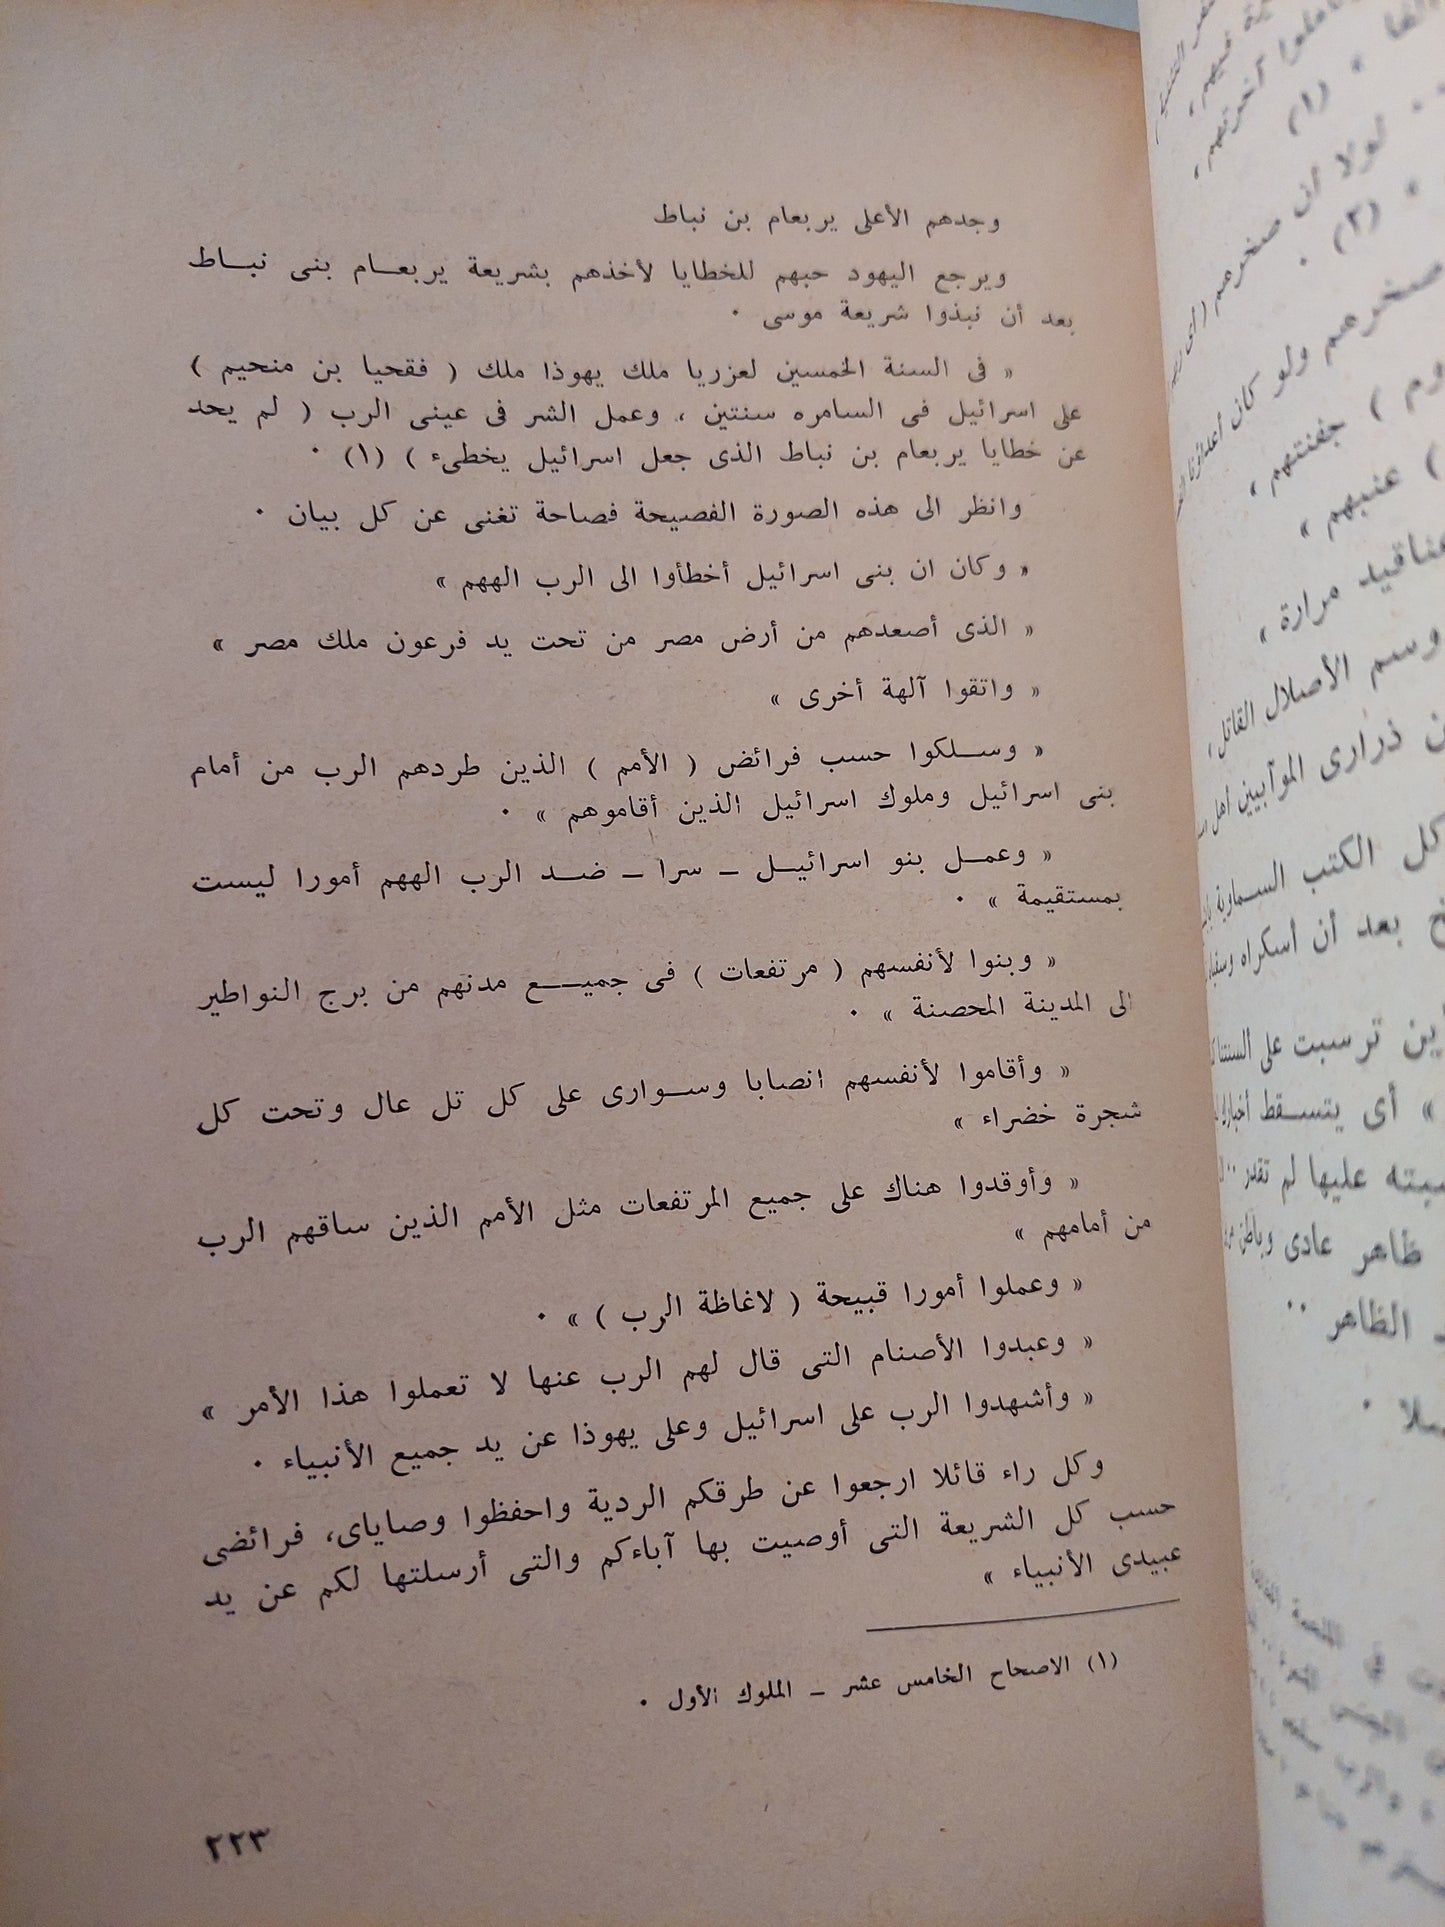 وجدهم الأعلى يربعام بن نباط
ويرجع اليهود حبهم للخطايا لأخذهم بشريعة يربعــام بنى نبــاط
بعد أن نبذوا شريعة موسى ٠
« فى السنة الخمسين لعزريا ملك يهوذا ملك ( فقحيا بن منحيم )
على اسرائيل فى السامره سنتين ، وعمل الشر فى عينى الرب ( لم يحد
عن خطايا يربعام بن نباط الذى جعل اسرائيل يخطىء ) (١) ٠
وانظر الى هذه الصورة الفصيحة فصاحة تغنى عن كل بيان ٠
« وكان ان بنى اسرائيل أخطأوا الى الرب الههم »
« الذى أصعدهم من أرض مصر من تحت يد فرعون ملك مصر »
« واتقوا آلهة أخرى »
« وســلكوا حسب فرائض ( الأمم ) الذين طردهم الرب من أمام
بنى اسرائيل وملوك اسرائيل الذين أقاموهم » ٠
« وعمــل بنو اسرائيــل ــ سرا ــ ضــد الرب الههم أمورا ليست
بمستقيمة » ٠
« وبنوا لأنفسهم ( مرتفعات ) فى جميــــع مدنهم من برج النواطير
الى المدينة المحصنة » ٠
« وأقاموا لأنفسهم انصابا وســوارى على كل تل عال وتحت كل
شجرة خضراء »
« وأوقدوا هناك على جميع المرتفعات مثل الأمم الذين ساقهم الرب
من أمامهم »
« وعملوا أمورا قبيحة ( لاغاظة الرب ) » ٠
« وعبدوا الأصنام التى قال لهم الرب عنها لا تعملوا هذا الأمر »
« وأشهدوا الرب على اسرائيل وعلى يهوذا عن يد جميع الأنبياء ٠
وكل راء قائلا ارجعوا عن طرقكم الردية واحفظوا وصاياى، فرائضى
حسب كل الشريعة التى أوصيت بها آباءكم والتى أرسلتها لكم عن يد
عبيدى الأنبياء »
(١) الاصحاح الخامس عشر ــ الملوك الأول ٠
٢٢٣
(١)
لولا ان صخرهم
(٢) ٠
صخرهم ولو كان أعداؤنا
) جفنتهم ،
) عنبهم »
مرارة »
وسم الأصلال القاتل ،
ذرارى الموآبيين أهل
كل الكتب السماوية
بعد أن أسكراه
ترسبت على ألسنتنا
» أى يتســقط
عليها لم تقدر
ظاهر عادى وباطن
الظاهر ٠٠